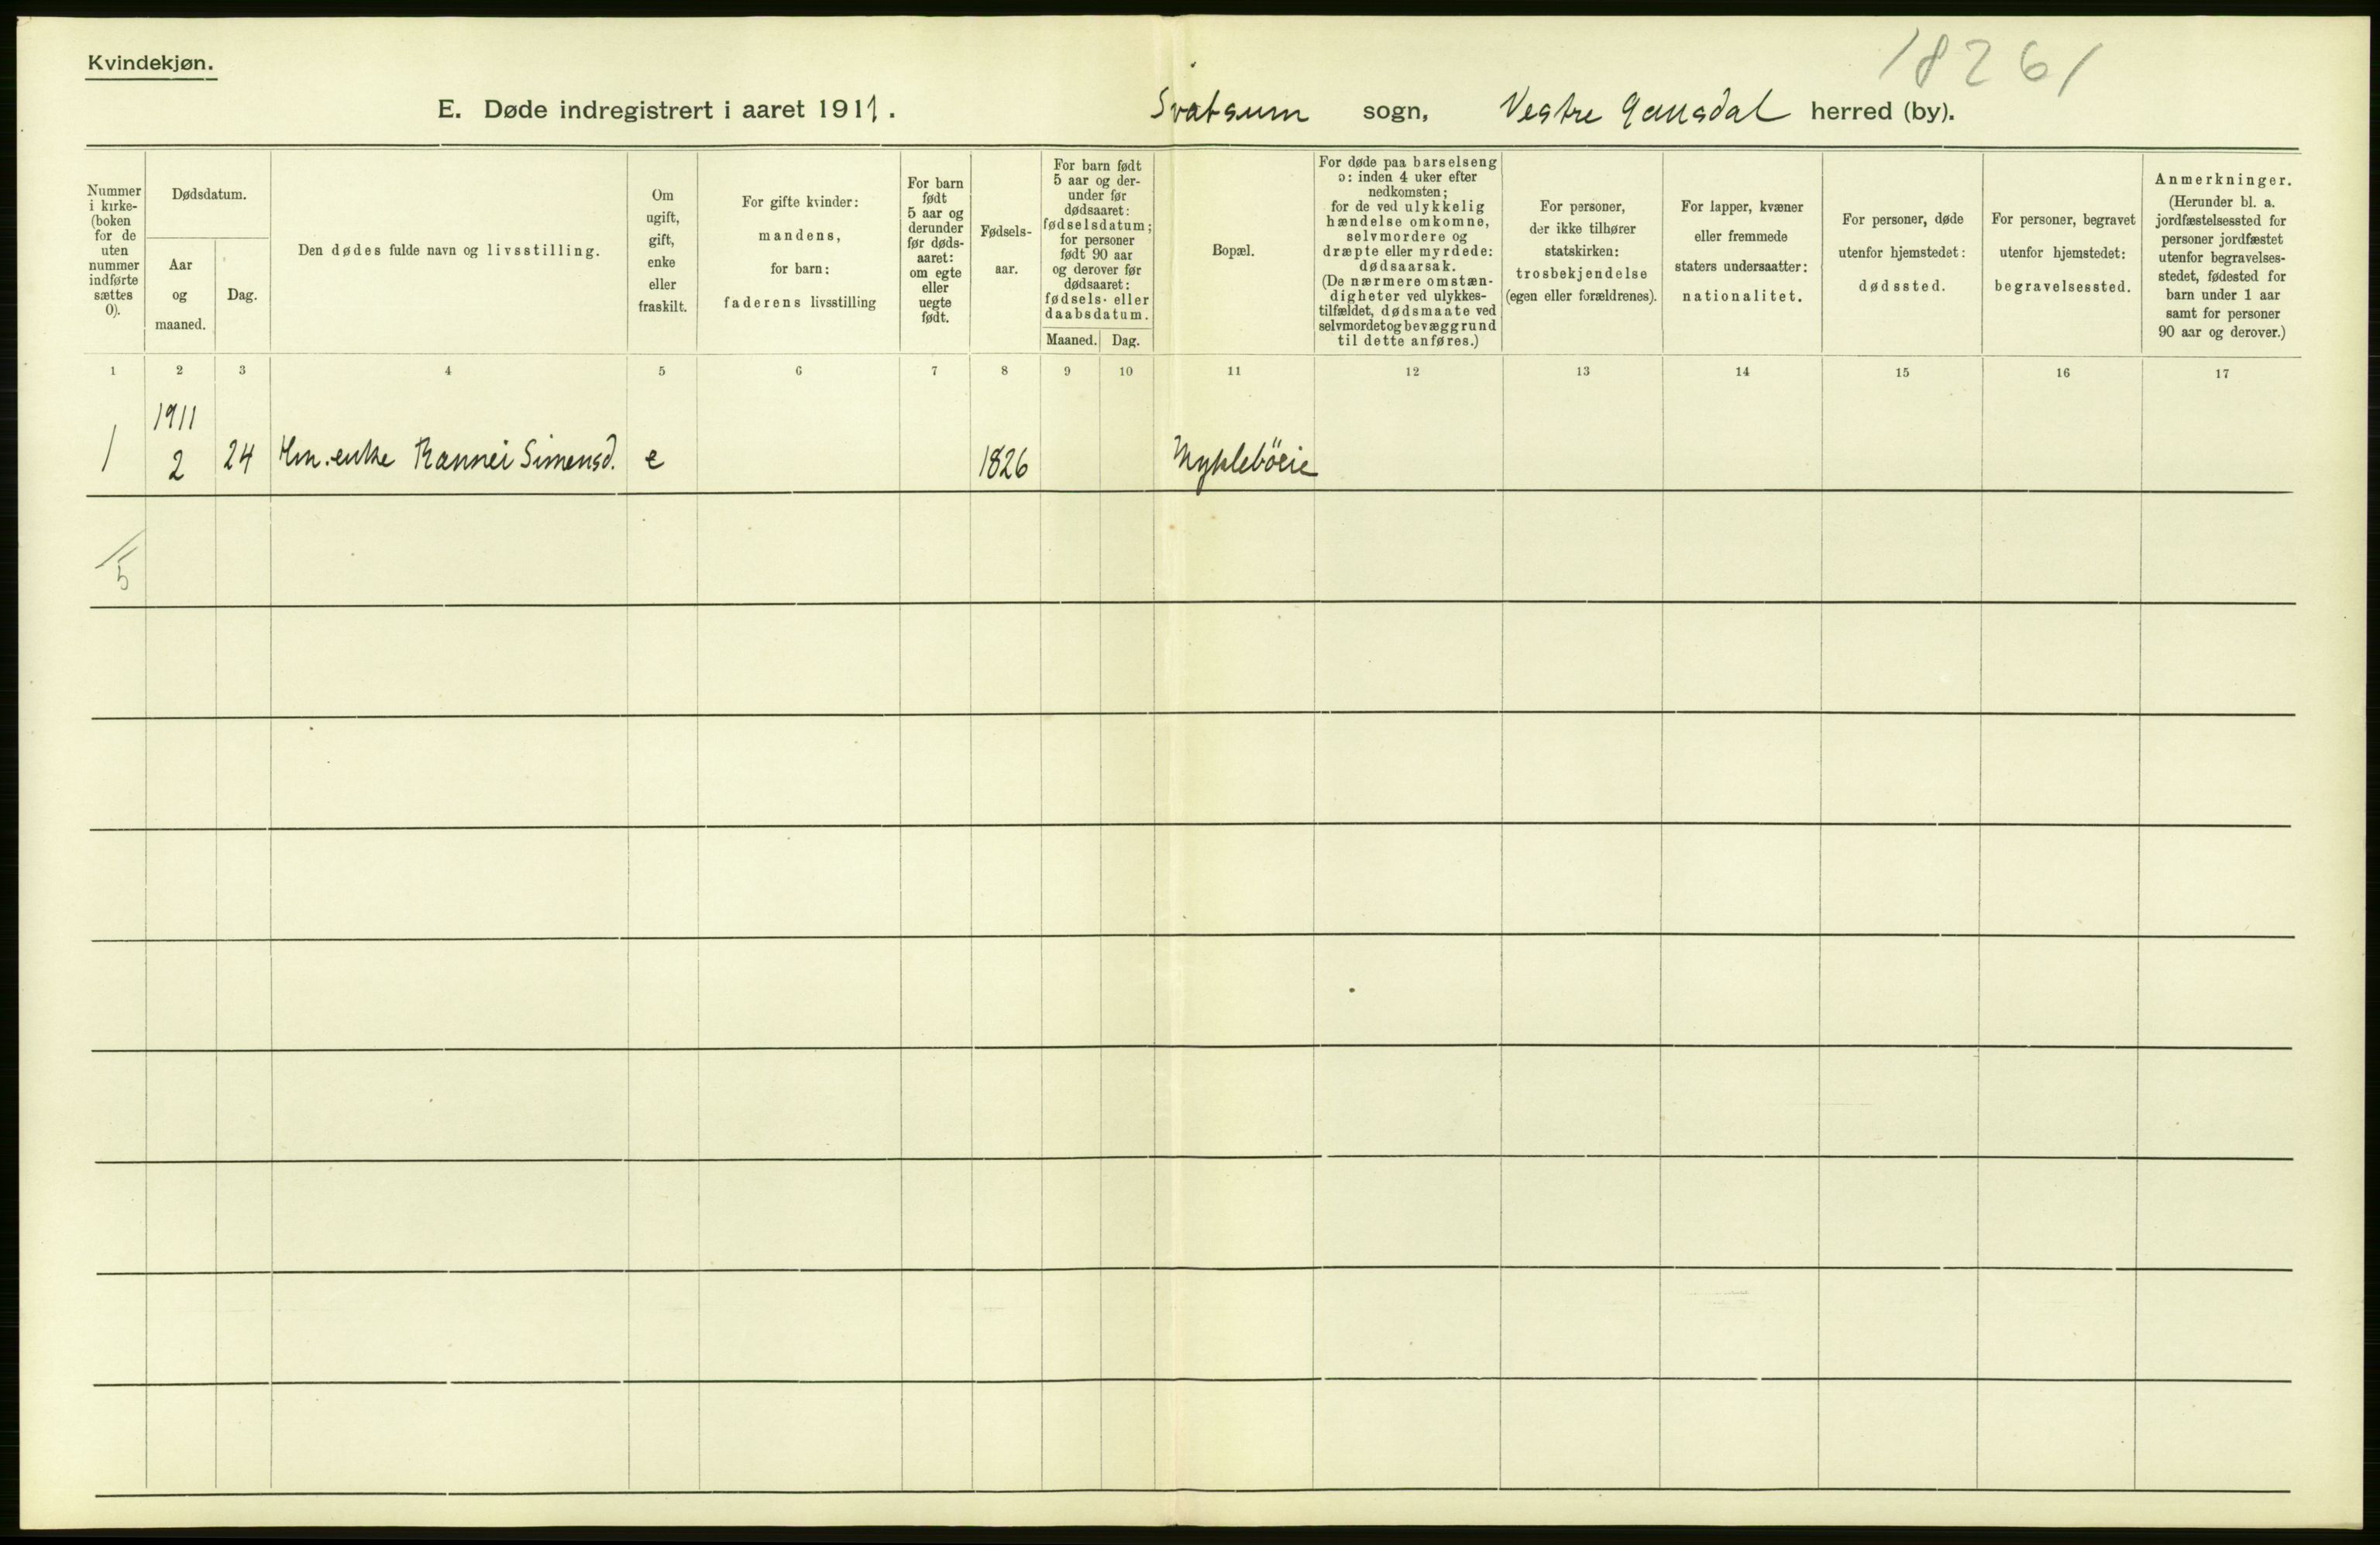 Kvindekjøn.
18261
E. Døde indregistrert i aaret 1911. Svatsum sogn, Vestre Gausdal herred (by).
Nummer
i kirke-
(boken
for de
uten
nummer
indførte
sættes
0).
Dødsdatum.
Aar
og
maaned.
Dag.
Den dødes fulde navn og livsstilling.
Om
ugift,
gift,
enke
eller
fraskilt.
For gifte kvinder:
mandens,
for barn:
faderens livsstilling
For barn
født
5 aar og
derunder
før døds-
aaret:
om egte
eller
uegte
født.
Fødsels-
aar.
For barn født
5 aar og der-
under før
dødsaaret:
fødselsdatum;
for personer
født 90 aar
og derover før
dødsaaret:
fødsels- eller
daabsdatum.
Maaned. Dag.
Bopæl.
For døde paa barselseng
ɔ: inden 4 uker efter
nedkomsten;
for de ved ulykkelig
hændelse omkomne,
selvmordere og
dræpte eller myrdede:
dødsaarsak.
(De nærmere omstæn-
digheter ved ulykkes-
tilfældet, dødsmaate ved
selvmordet og bevæggrund
til dette anføres.)
For personer,
der ikke tilhører
statskirken:
trosbekjendelse
(egen eller forældrenes).
For lapper, kvæner
eller fremmede
staters undersaatter:
nationalitet.
For personer, døde
utenfor hjemstedet:
dødssted.
For personer, begravet
utenfor hjemstedet:
begravelsessted.
Anmerkninger.
(Herunder bl. a.
jordfæstelsessted for
personer jordfæstet
utenfor begravelses-
stedet, fødested for
barn under 1 aar
samt for personer
90 aar og derover.)
1 2 3 4 5 6 7 8 9 10 11 12 13 14 15 16 17
1911
1 2 24 Hm. enke Rannei Simensd. e 1826 Mykleböeie
5